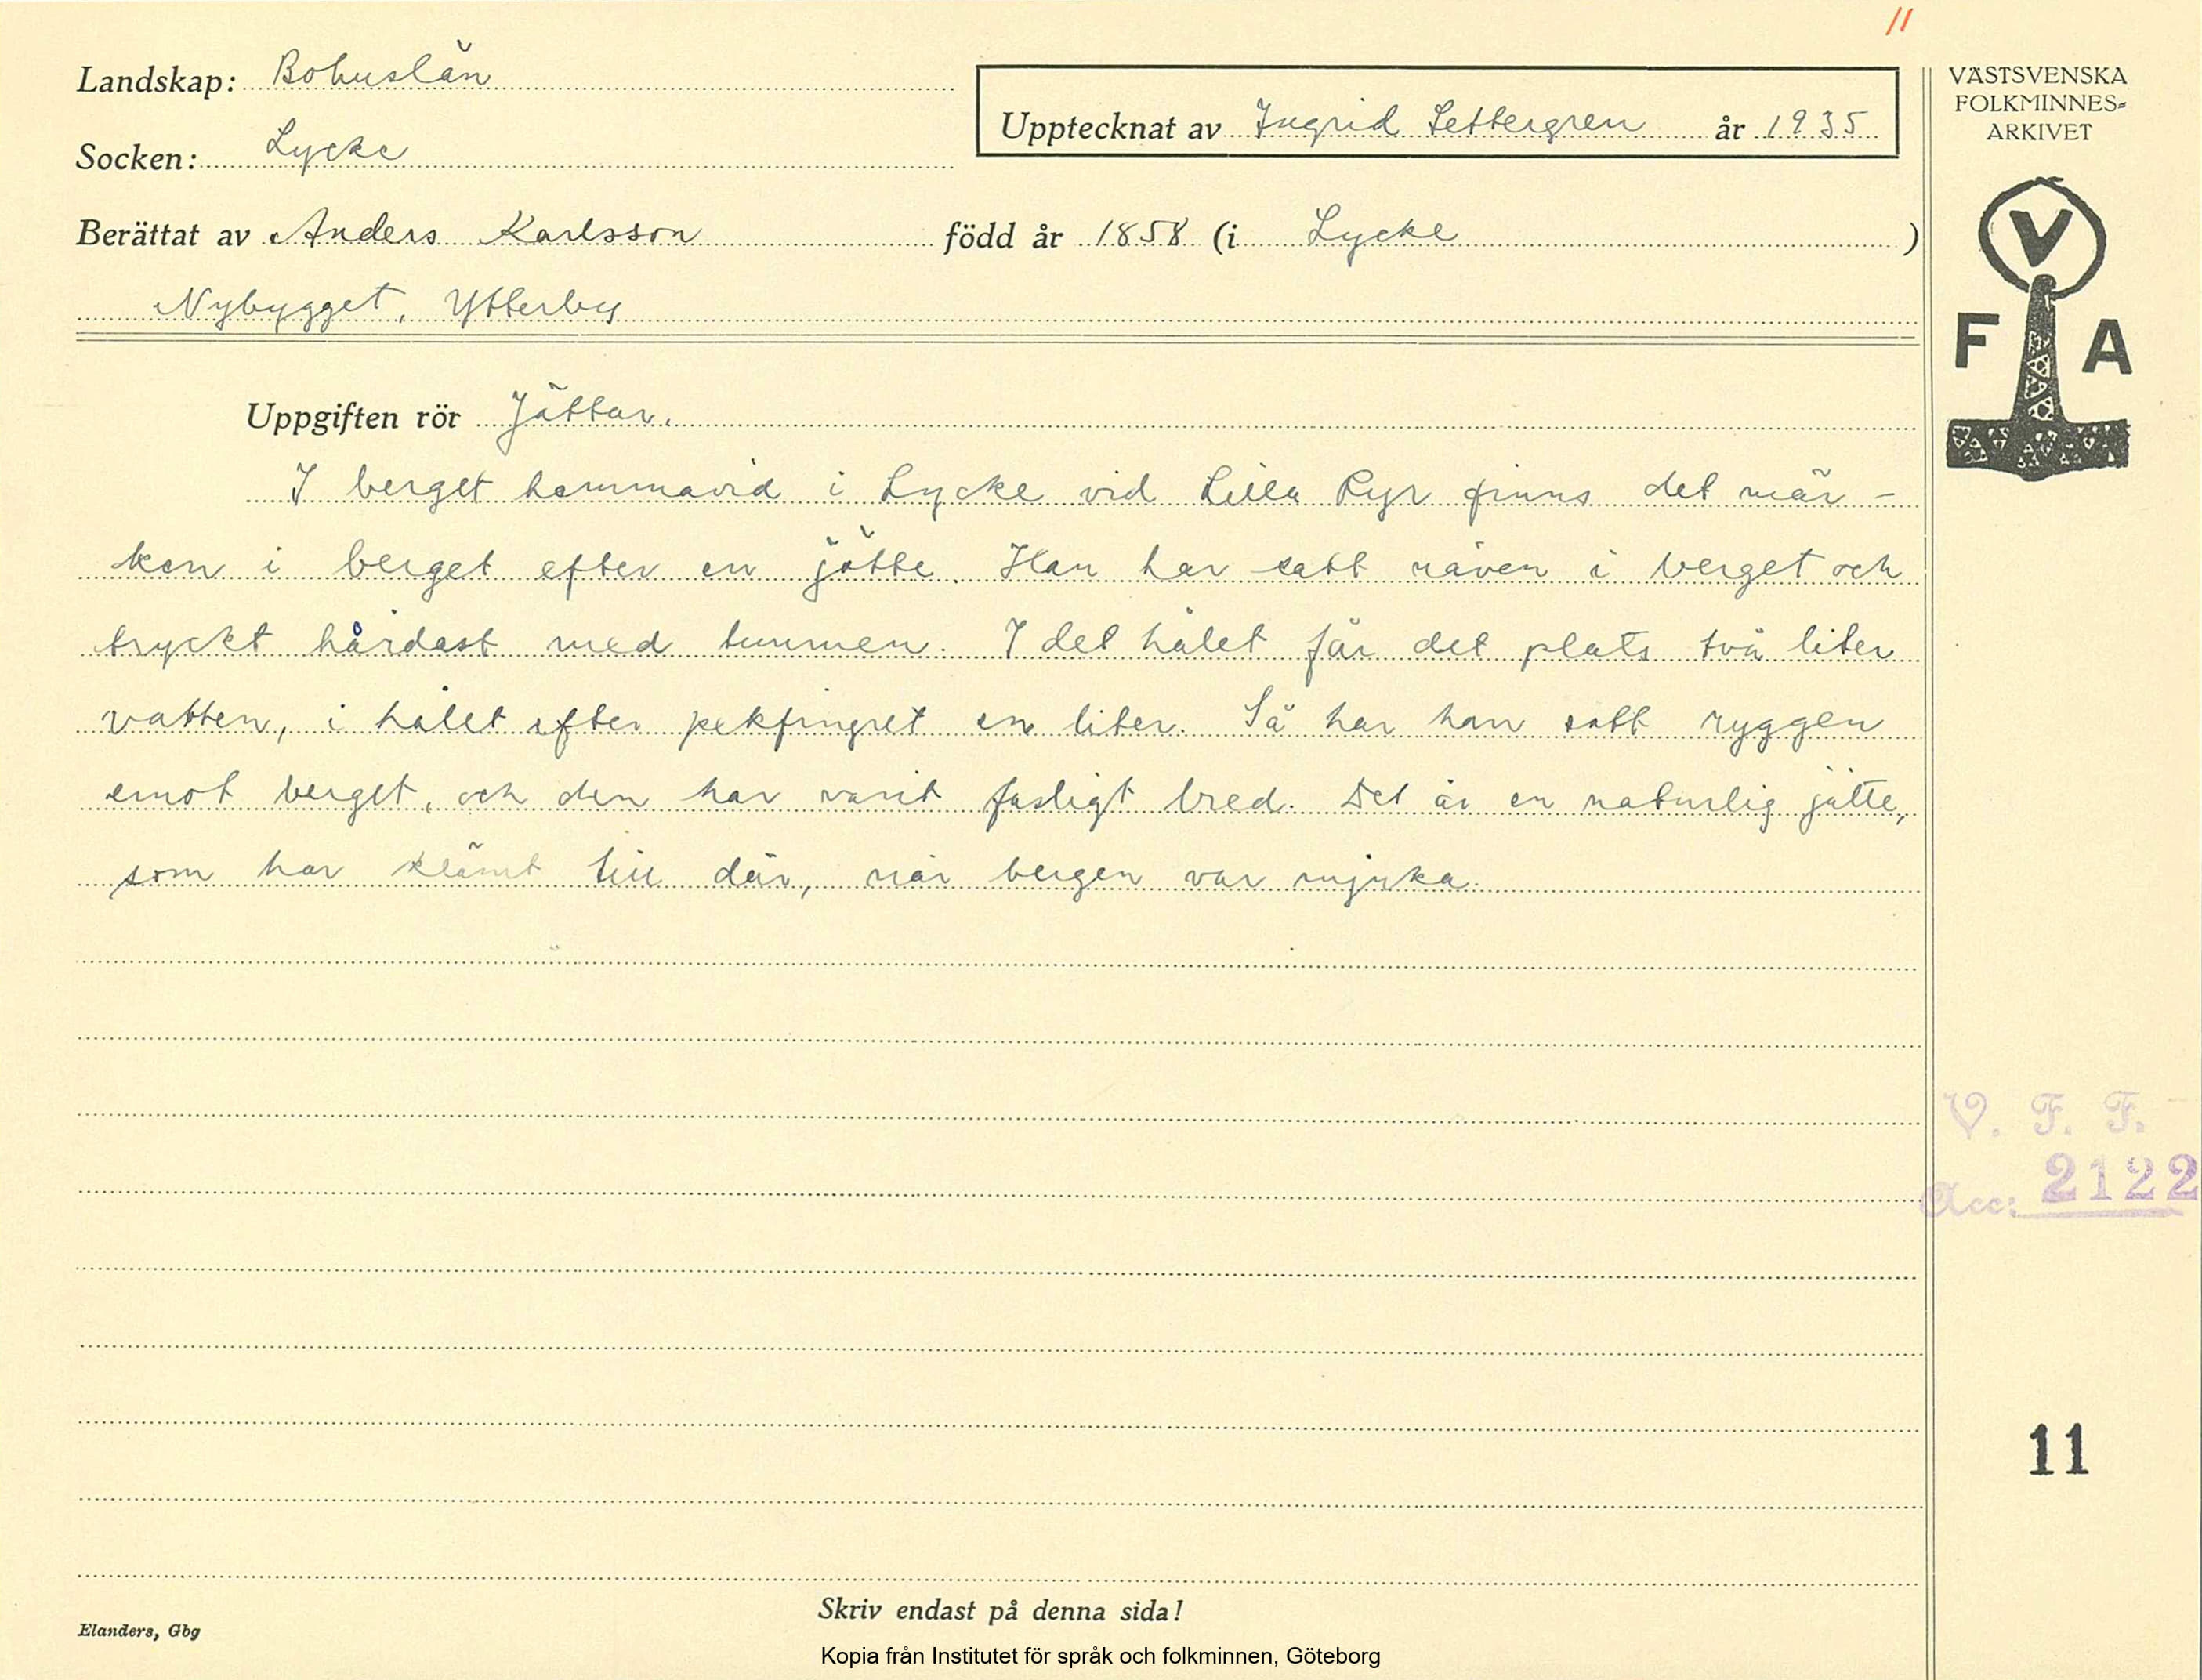 11
Landskap: Bohuslän
Socken: Lycke
Upptecknat av Ingrid Settergren år 1935
Berättat av Anders Karlsson född år 1858 (i Lycke )
Nybygget, Ytterby
VÄSTSVENSKA
FOLKMINNES-
ARKIVET
V
F A
Uppgiften rör Jättar.
I berget hemmavid i Lycke vid Lilla Ryr finns det mär-
ken i berget efter en jätte. Han har satt näven i berget och
tryckt hårdast med tummen. I det hålet får det plats två liter
vatten, i hålet efter pekfingret en liter. Så har han satt ryggen
emot berget, och den har varit fasligt bred. Det är en naturlig jätte,
som har klämt till där, när bergen var mjuka.
V. F. F.
Acc: 2122
11
Skriv endast på denna sida!
Elanders, Gbg
Kopia från Institutet för språk och folkminnen, Göteborg